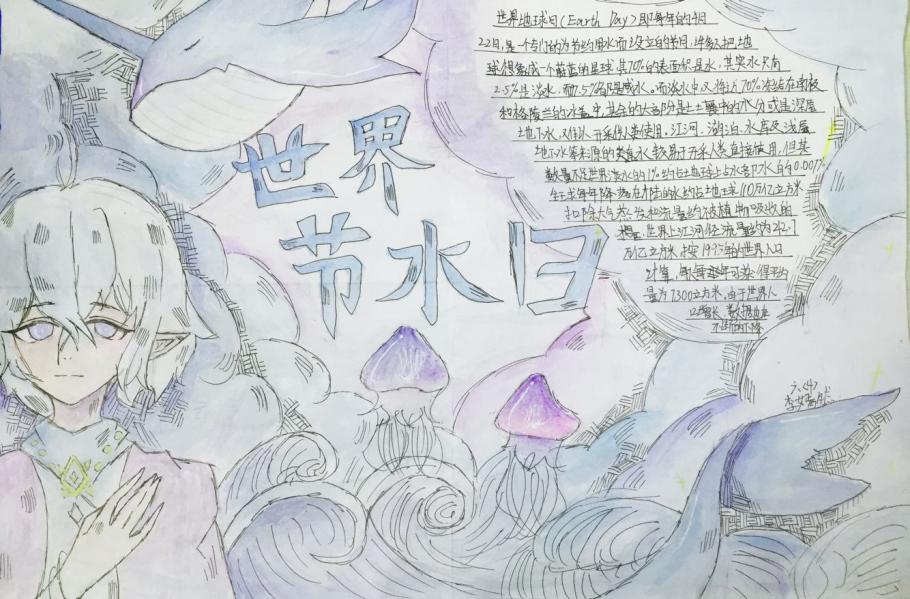 世界
节水日
世界地球日(Earth Day)即每年的4月
22日,是一个专门为节约用水而设立的节日,许多人把地
球想象成一个蔚蓝的星球,其70%的表面积是水,其实水只有
2.5%是淡水,而97.5%是咸水。而淡水中又将近70%冻结在南极
和格陵兰的冰盖中,其余的大部分是土壤中的水分或是深层
地下水,难以开采供人类使用。江河、湖泊、水库及浅层
地下水等来源的 水较易于开采 人类直接使用,但其
数量不足世界淡水的1%,约占地球上 水的0.007%
全球年 降落在大陆的水约占地球110万亿立方米
扣除大气蒸发和 被植物吸收的
世界上江河径流量约为42.7
万亿立方米,按 世界人口
计算,每 每年可获得平均
量为7300立方米,由于世界人
口增长,
不断下降
六、(4)
李